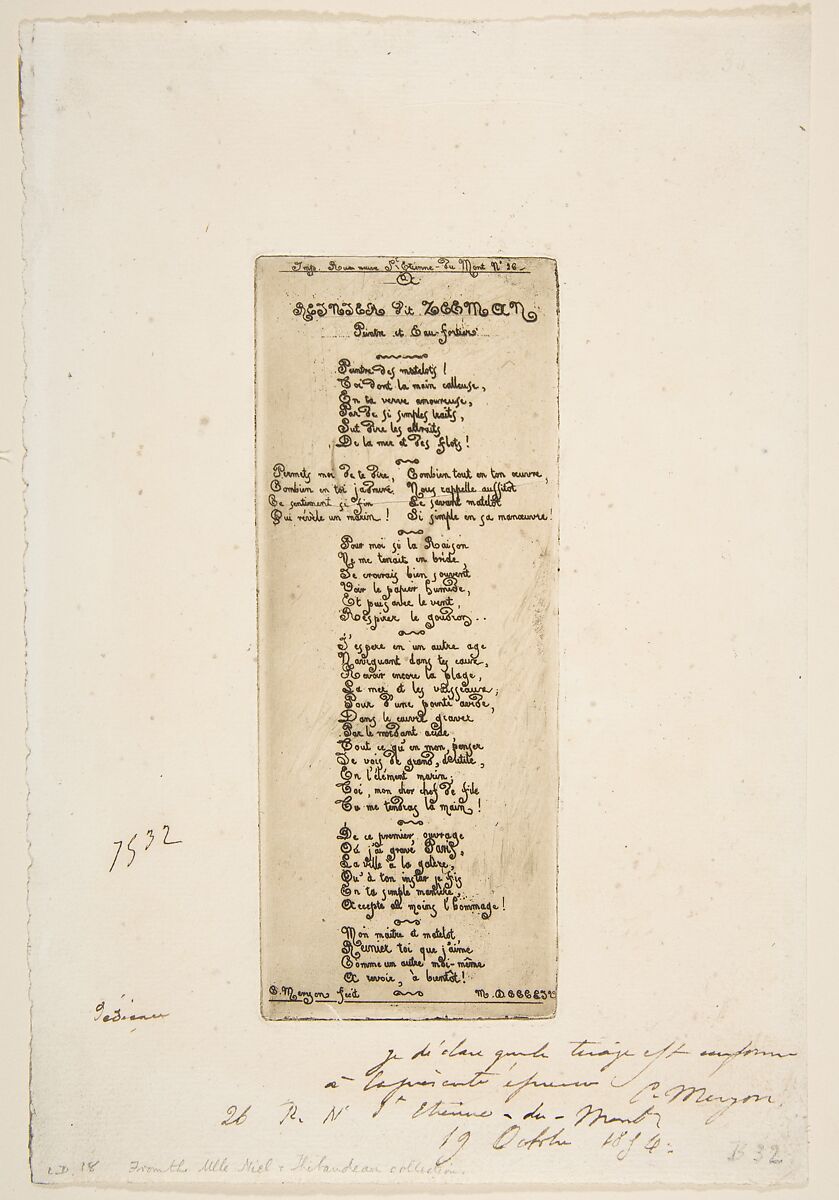 Imp. Rue neuve St Etienne-du Mont No 26.
A
REINIER dit ZEEMAN
Peintre et Eau-fortier.
Peintre des matelots !
Toi dont la main calleuse,
En ta verve amoureuse,
Par de si simples traits,
Sut dire les attraits
De la mer et des flots !
Permets moi de te dire,
Combien en toi j'admire
Ce sentiment si fin
Qui révèle un marin !
Combien tout en ton œuvre,
Nous rappelle aussitôt
Le savant matelot
Si simple en sa manœuvre !
Pour moi si la Raison
Ne me tenait en bride,
Je croirais bien souvent
Voir le papier humide,
Et puis avec le vent,
Respirer le goudron..
J'espere en un autre age
Naviguant dans tes eaux,
Revoir encore la plage,
La mer et les vaisseaux;
Pour d'une pointe avide,
Dans le cuivre graver
Par le mordant acide
Tout ce qu'en mon penser
Je vois de grand, d'utile,
En l'élément marin;
Toi, mon cher chef de file
Tu me tendras la main !
De ce premier ouvrage
Où j'ai gravé Paris,
La ville à la galère,
Qu'à ton instar je fis
En ta simple manière,
Accepte au moins l'hommage !
Mon maître et matelot
Reinier toi que j'aime
Comme un autre moi-même
A revoir, à bientôt !
C. Meryon fecit
M.DCCCLIV
7532
Dédicace
je déclare que le tirage est conforme
à la présente épreuve C. Meryon.
26 R. N St Etienne-du-Mont
19 Octobre 1854.
L.D. 18 From the Mlle Niel & Thibaudeau collections.
B 32